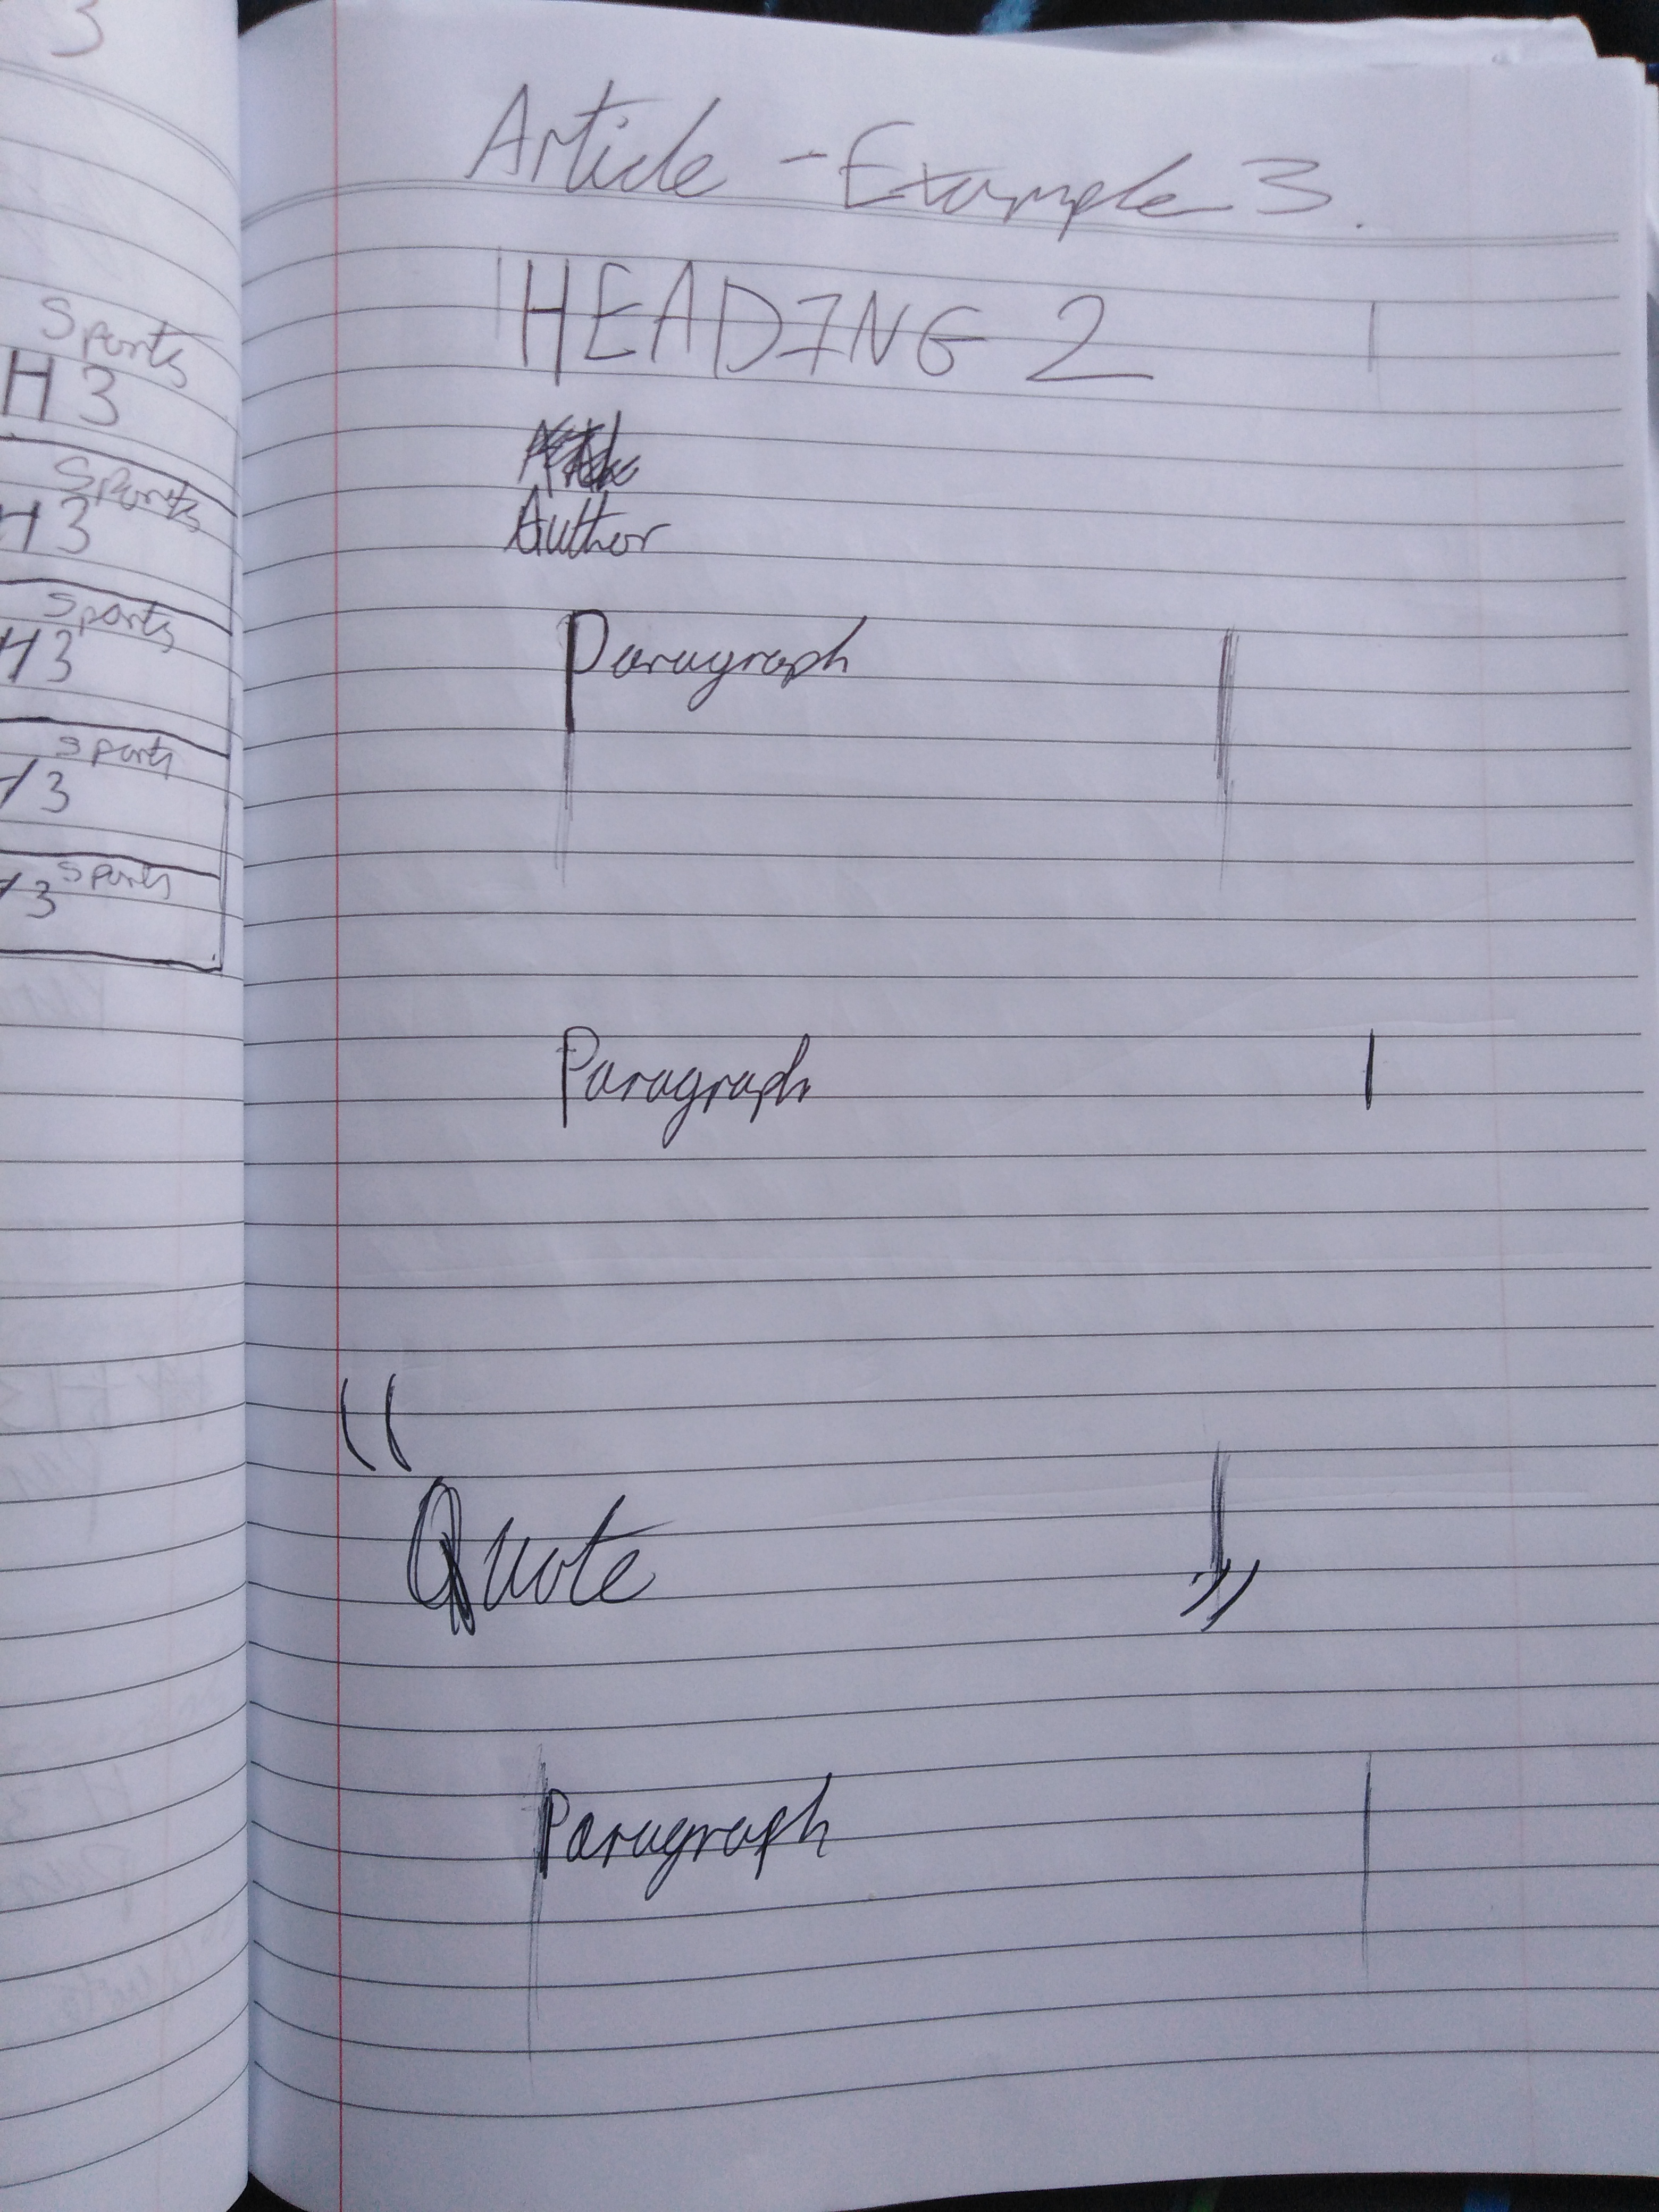 3
Sports
H3
Sports
H3
Sports
H3
Sports
3
Sports
3
Article - Example 3.
HEADING 2
Author
Paragraph
Paragraph
“
Quote
”
Paragraph